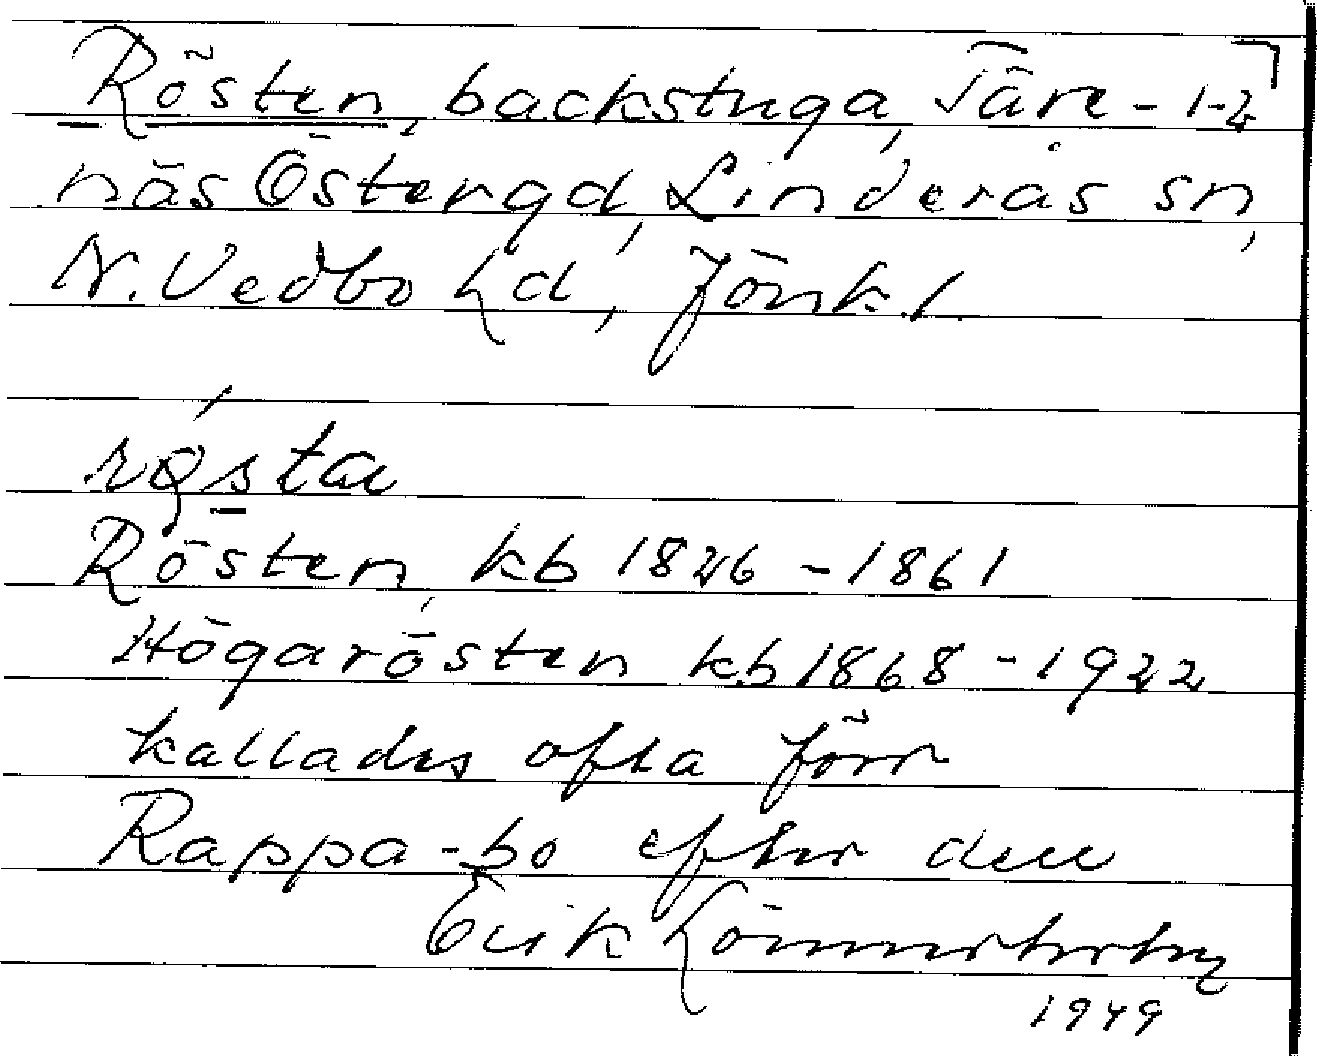 Rösten, backstuga, Täre- 1-2
näs Östergd, Linderås sn,
N. Vedbo hd, Jönk. l.
rǫ́sta
Rösten, kb 1826-1861
Högarösten kb 1868-1922
kallades ofta förr
Rappa-bo efter den
Erik Lönnerholm
1949